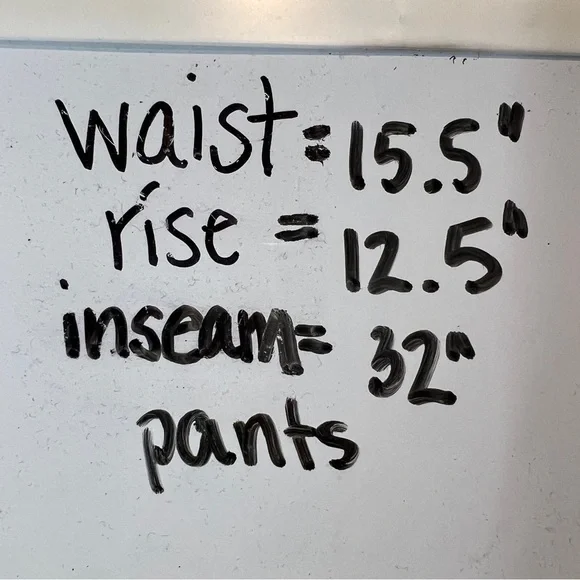 waist = 15.5"
rise = 12.5"
inseam = 32"
pants